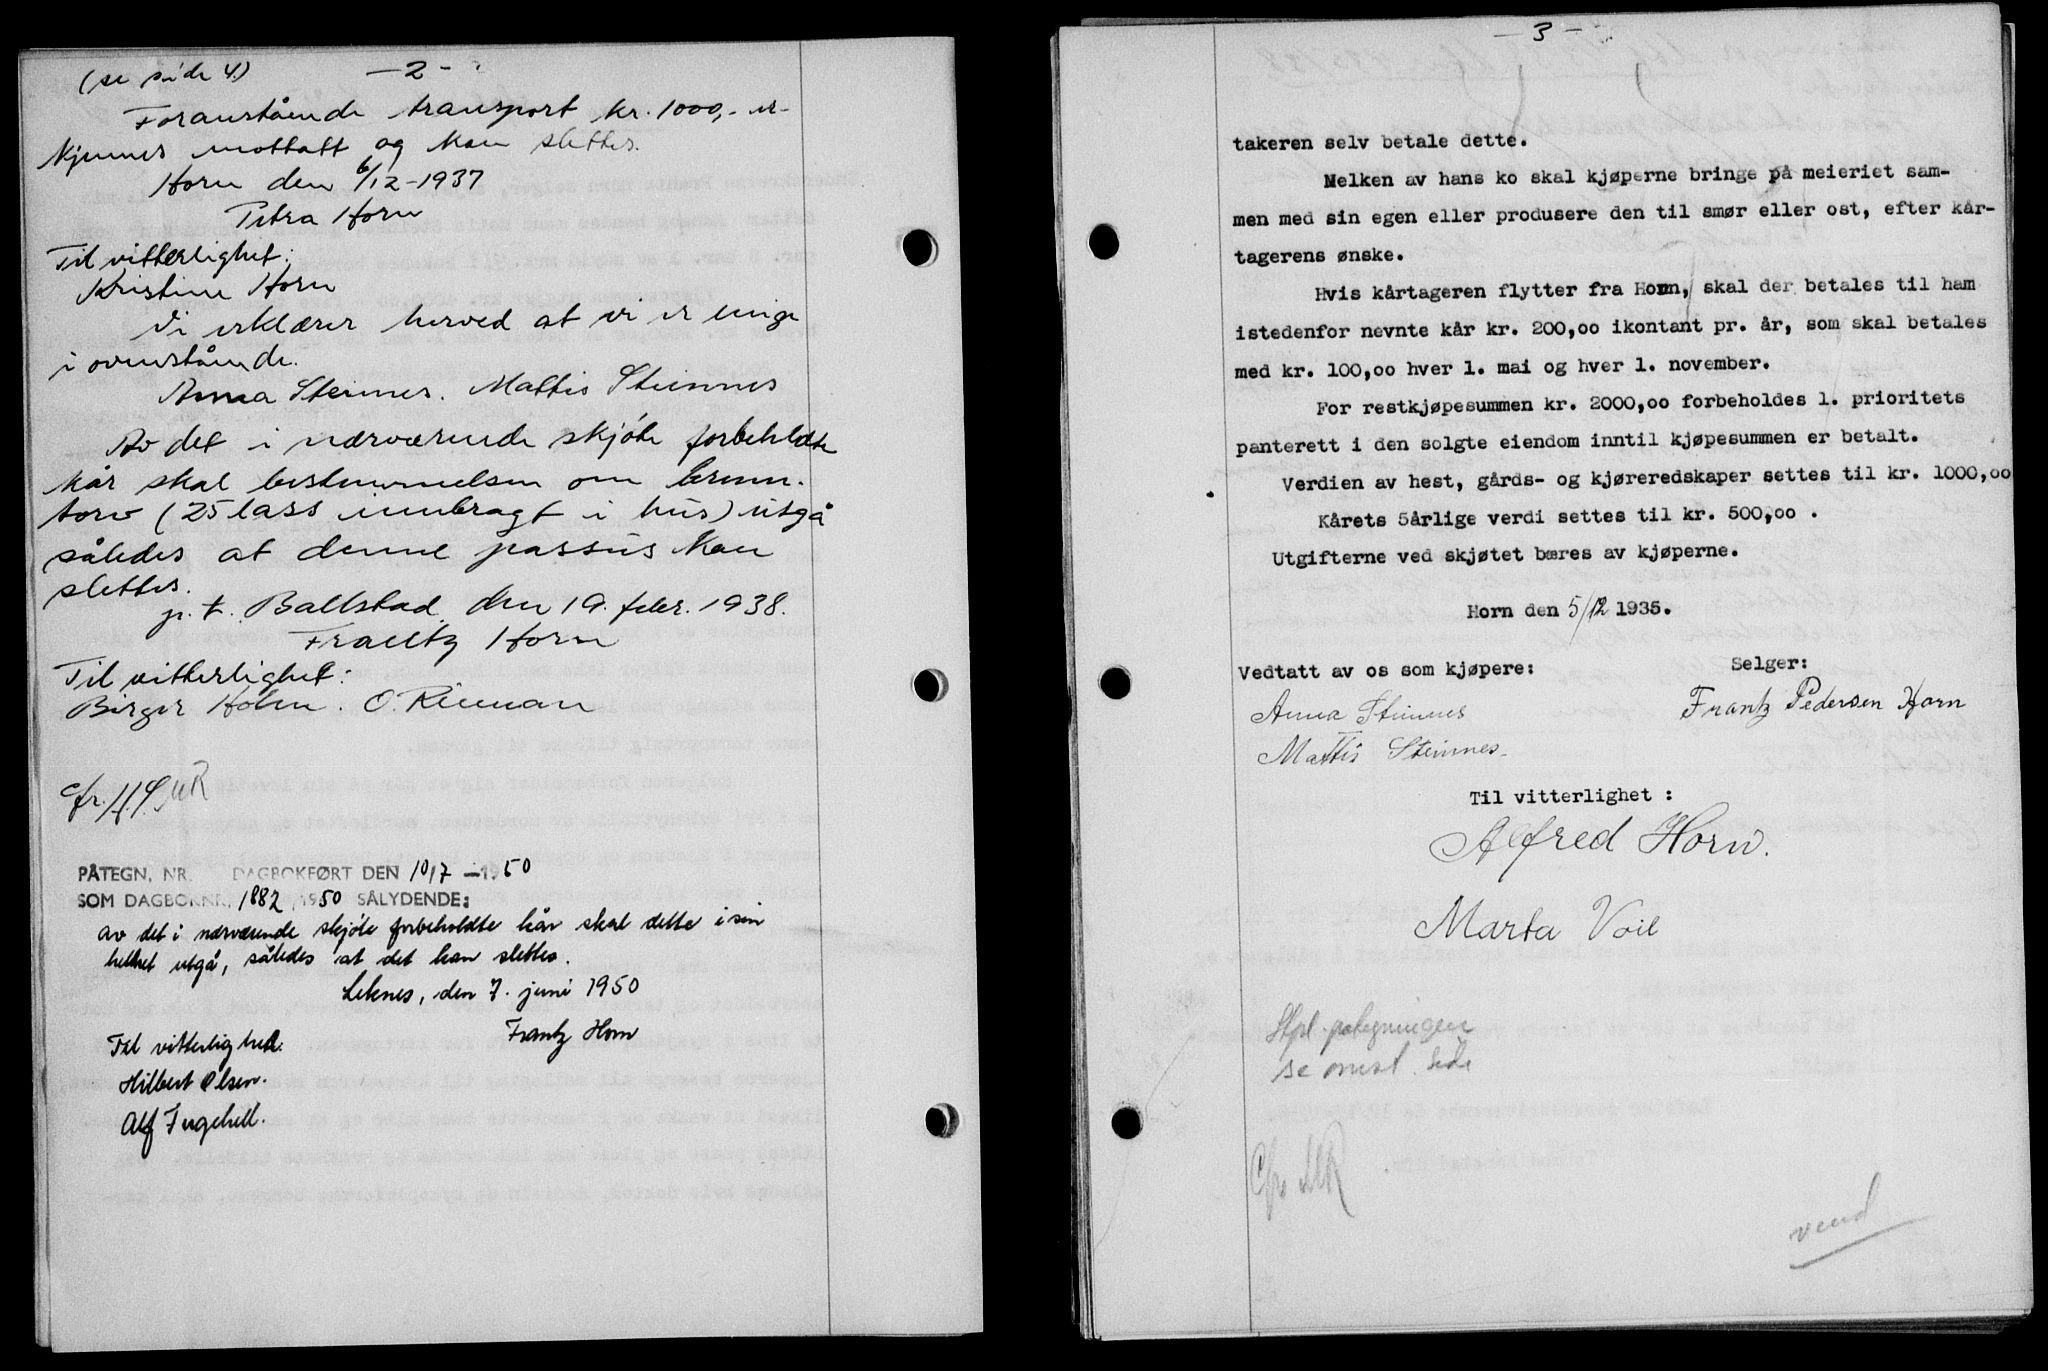 (se side 4)
- 2 -
Foranstående transport kr. 1000,- er-
kjennes mottatt og kan slettes.
Horn den 6/12-1937
Petra Horn
Til vitterlighet:
Kristine Horn
Vi erklærer herved at vi er enige
i ovenstående.
Anna Steinnes. Mattis Steinnes
Av det i nærværende skjöte forbeholdte
kår skal bestemmelsen om brenn-
torv (25 lass innbragt i hus) utgå
således at denne passus kan
slettes.
p.t. Ballstad den 19. febr. 1938.
Frantz Horn
Til vitterlighet:
Birger Holm. O. Rieman
PÅTEGN. NR. DAGBOKFØRT DEN 10/7 - 1950
SOM DAGBOKNR. 1882 1950 SÅLYDENDE:
Av det i nærværende skjöte forbeholdte kår skal dette i sin
helhet utgå, således at det kan slettes.
Leknes, den 7. juni 1950
Frantz Horn
Til vitterlighet.
Hilbert Olsen.
Alf Ingebell.
- 3 -
takeren selv betale dette.
Melken av hans ko skal kjøperne bringe på meieriet sam-
men med sin egen eller produsere den til smør eller ost, efter kår-
tagerens ønske.
Hvis kårtageren flytter fra Horn, skal der betales til ham
istedenfor nevnte kår kr. 200,oo ikontant pr. år, som skal betales
med kr. 100,oo hver 1. mai og hver 1. november.
For restkjøpesummen kr. 2000,oo forbeholdes 1. prioritets
panterett i den solgte eiendom inntil kjøpesummen er betalt.
Verdien av hest, gårds- og kjøreredskaper settes til kr. 1000,oo
Kårets 5årlige verdi settes til kr. 500,oo .
Utgifterne ved skjøtet bæres av kjøperne.
Horn den 5/12 1935.
Vedtatt av os som kjøpere:
Selger:
Anna Steinnes
Frantz Pedersen Horn
Mattis Steinnes.
Til vitterlighet :
Alfred Horn.
Marta Voie
Stpl. påtegningen
se omst. side
vend